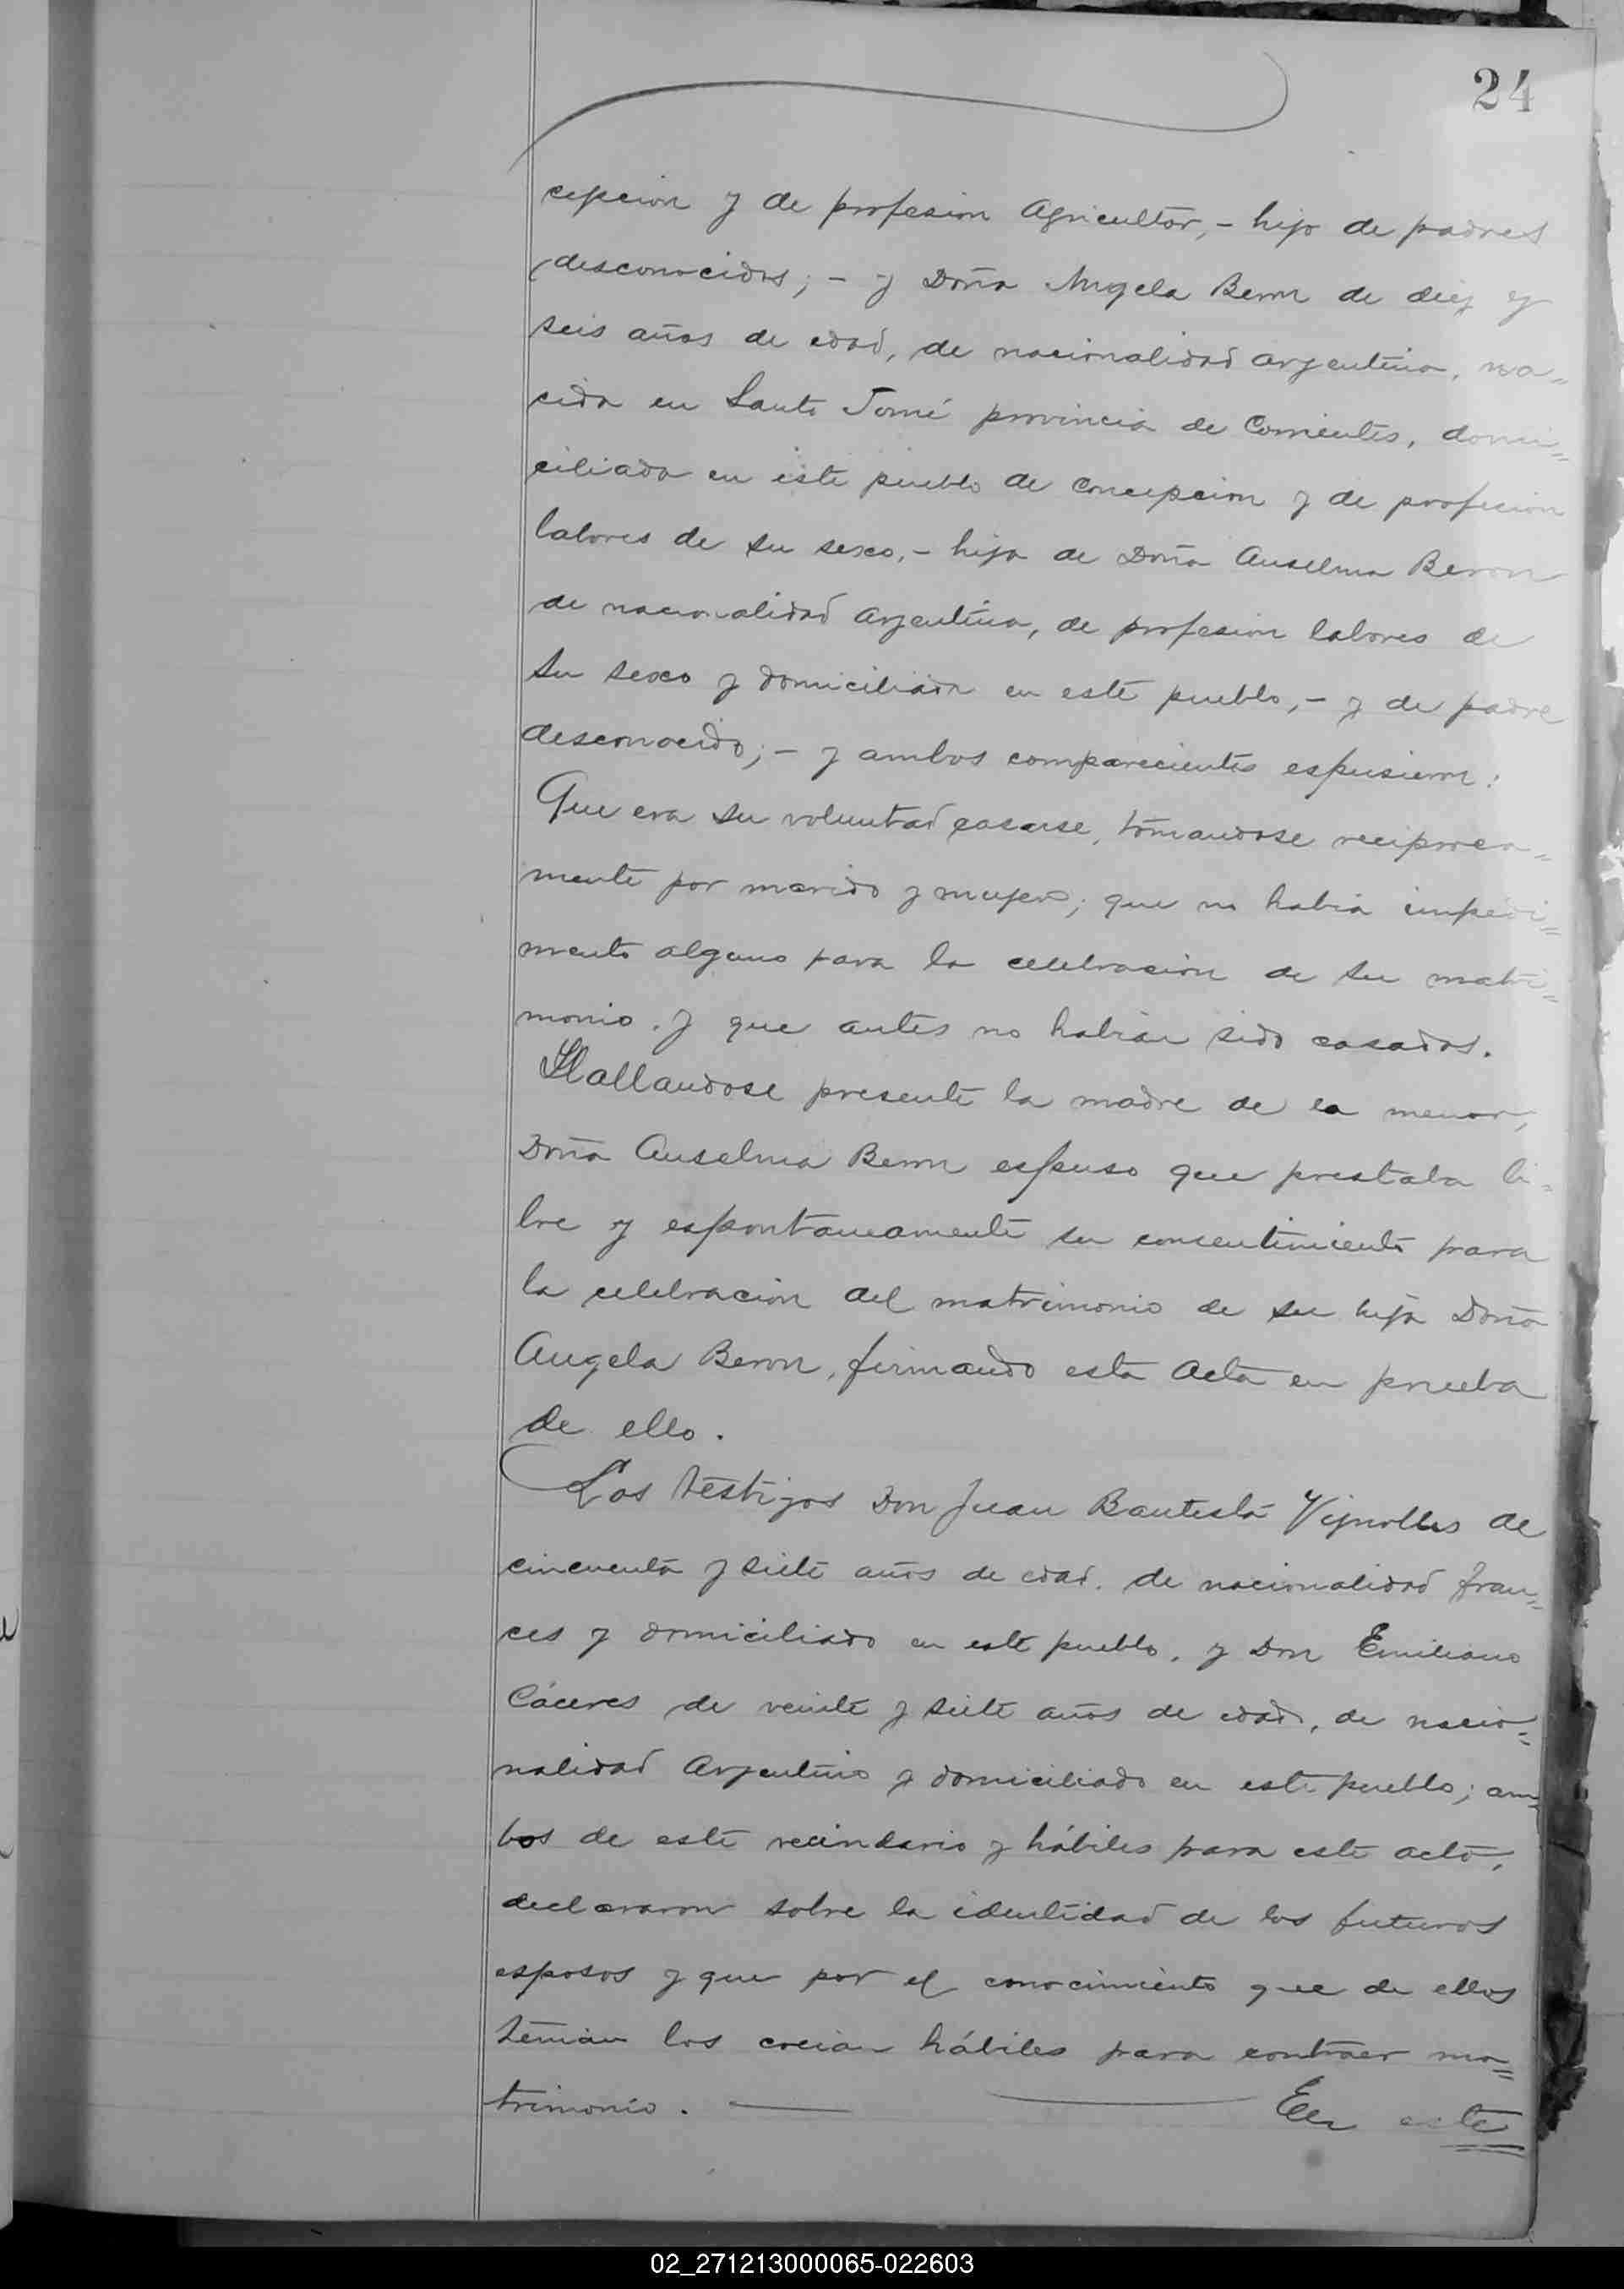 24
cepcion y de profesion Agricultor,- hijo de padres
desconocidos; - y Doña Angela Beron de diez y
seis años de edad, de nacionalidad argentina, na=
cida en Santo Tomé provincia de Corrientes, domi=
ciliada en este pueblo de Concepcion y de profesion
labores de su sexo,- hija de Doña Anselma Beron
de nacionalidad argentina, de profesion labores de
su sexo y domiciliada en este pueblo,- y de padre
desconocido;- y ambos comparecientes espusieron:
Que era su voluntad casarse, tomandose reciproca=
mente por marido y mujer; que no habia impedi=
mento alguno para la celebracion de su matri=
monio. y que antes no habian sido casados.
Hallandose presente la madre de la menor,
Doña Anselma Beron espuso que prestaba li=
bre y espontaneamente su consentimiento para
la celebracion del matrimonio de su hija Doña
Angela Beron, firmando esta acta en prueba
de ello.
Los testigos Don Juan Bautista Vignolles de
cincuenta y siete años de edad. de nacionalidad fran=
ces y domiciliado en este pueblo, y Don Emiliano
Cáceres de veinte y siete años de edad, de nacio=
nalidad Argentino y domiciliado en este pueblo; am=
bos de este vecindario y hábiles para este acto,
declararon sobre la identidad de los futuros
esposos y que por el conocimiento que de ellos
tenian los creian hábiles para contraer ma=
trimonio. — — En este
02_271213000065-022603